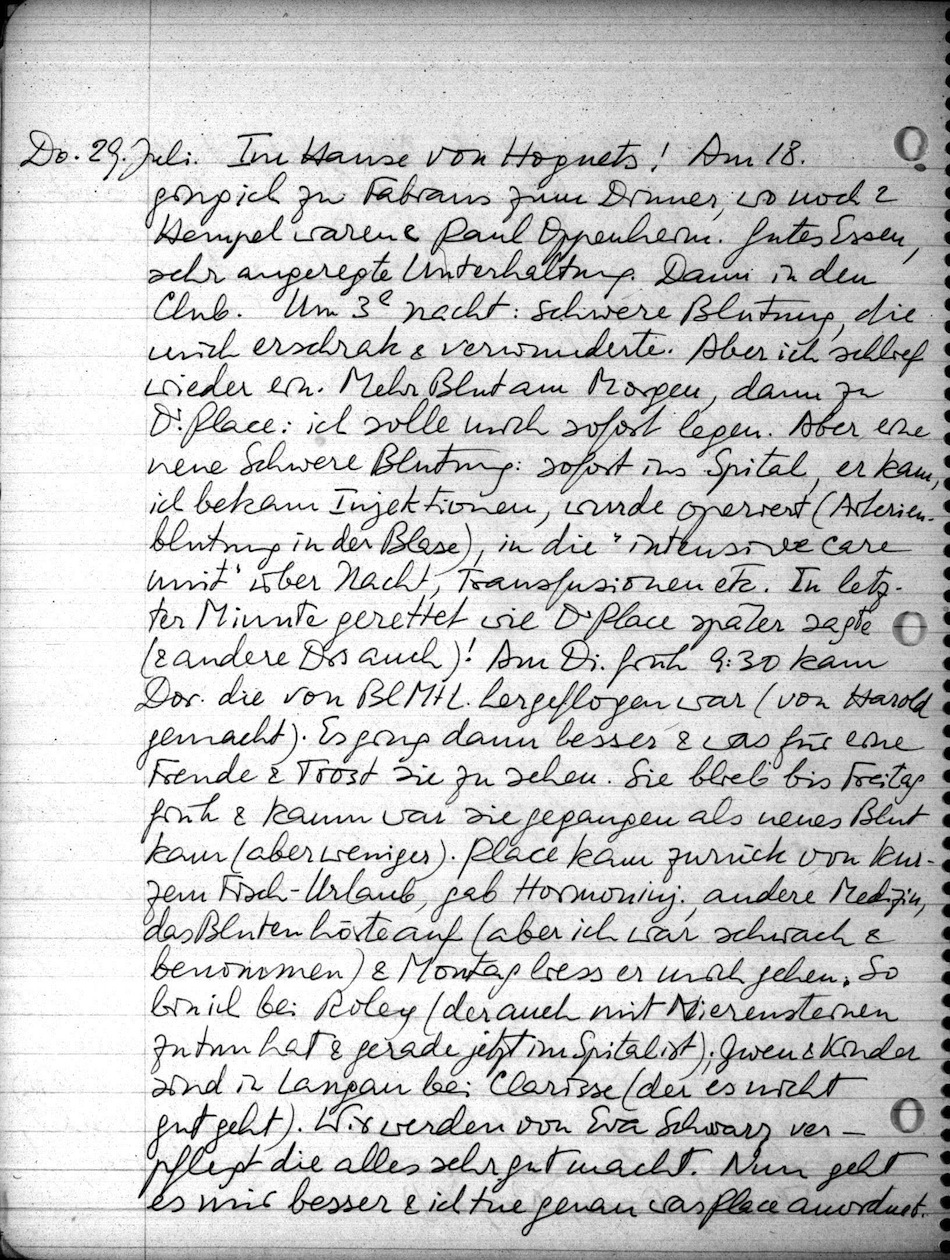 Do. 29. Juli. Im Hause von Hognets! Am 18.
ging ich zu Fabians zum Dinner, wo noch 2
Hempel waren & Paul Oppenheim. Gutes Essen,
sehr angeregte Unterhaltung. Dann in den
Club. Um 3e nacht: schwere Blutung, die
mich erschrak & verwunderte. Aber ich schlief
wieder ein. Mehr Blut am Morgen, dann zu
Dr. Place: ich solle mich sofort legen. Aber eine
neue schwere Blutung: sofort ins Spital, er kam,
ich bekam Injektionen, wurde operiert (Arterien-
blutung in der Blase), in die "intensive care
unit" über Nacht, Transfusionen etc. In letz-
ter Minute gerettet wie Dr Place später sagte
(& andere Drs auch)! Am Di. früh 9:30 kam
Dor. die von Bl Mt L. hergeflogen war (von Harold
gemacht). Es ging dann besser & was für eine
Freude & Trost sie zu sehen. Sie blieb bis Freitag
früh & kaum war sie gegangen als neues Blut
kam (aber weniger). Place kam zurück von kur-
zem Fisch-Urlaub, gab Hormoninj., andere Medizin,
das Bluten hörte auf (aber ich war schwach &
benommen) & Montag liess er mich gehen. So
bin ich bei Roley (der auch mit Nierensteinen
zu tun hat & gerade jetzt im Spital ist); Gwen & Kinder
sind in Langau bei Clarisse (der es nicht
gut geht). Wir werden von Eva Schwarz ver-
pflegt die alles sehr gut macht. Nun geht
es mir besser & ich tue genau was Place anordnet.